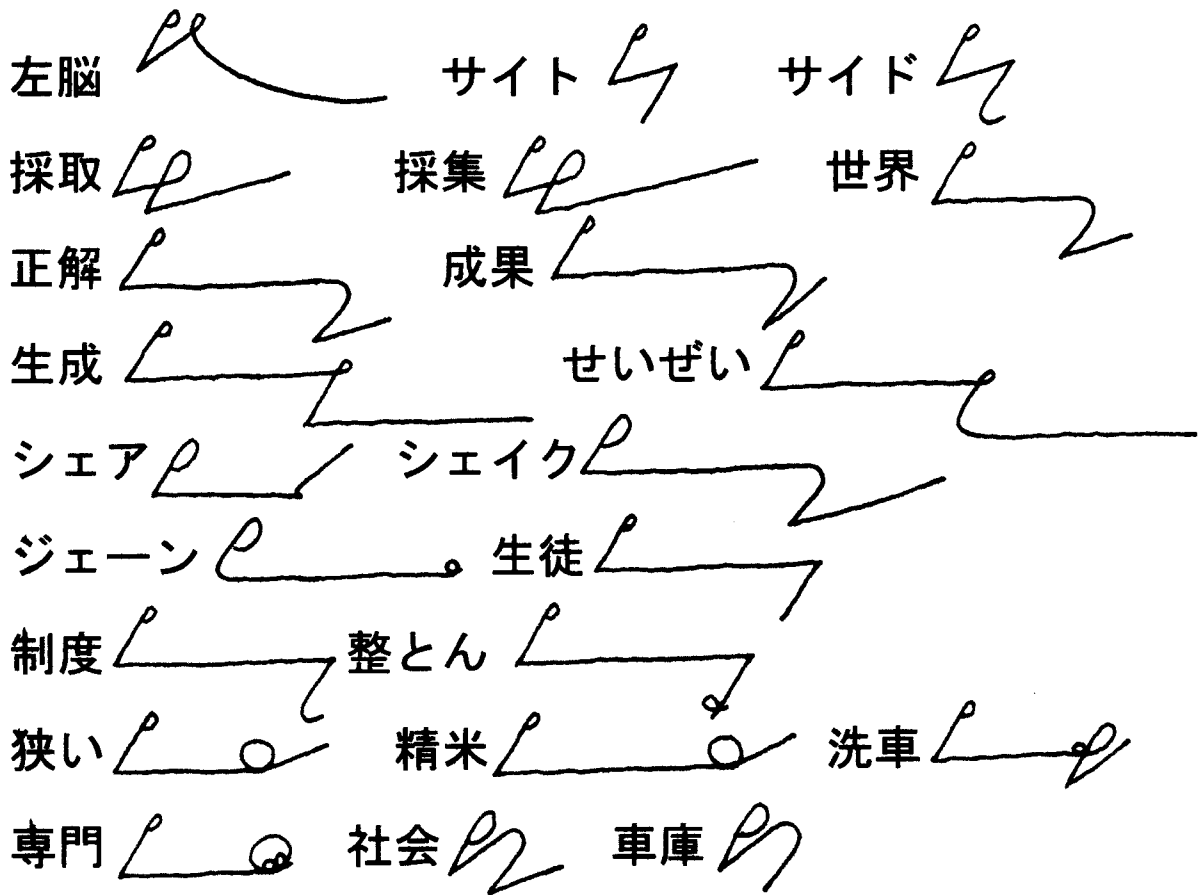 左脳 サイト サイド
採取 採集 世界
正解 成果
生成 せいぜい
シェア シェイク
ジェーン 生徒
制度 整とん
狭い 精米 洗車
専門 社会 車庫